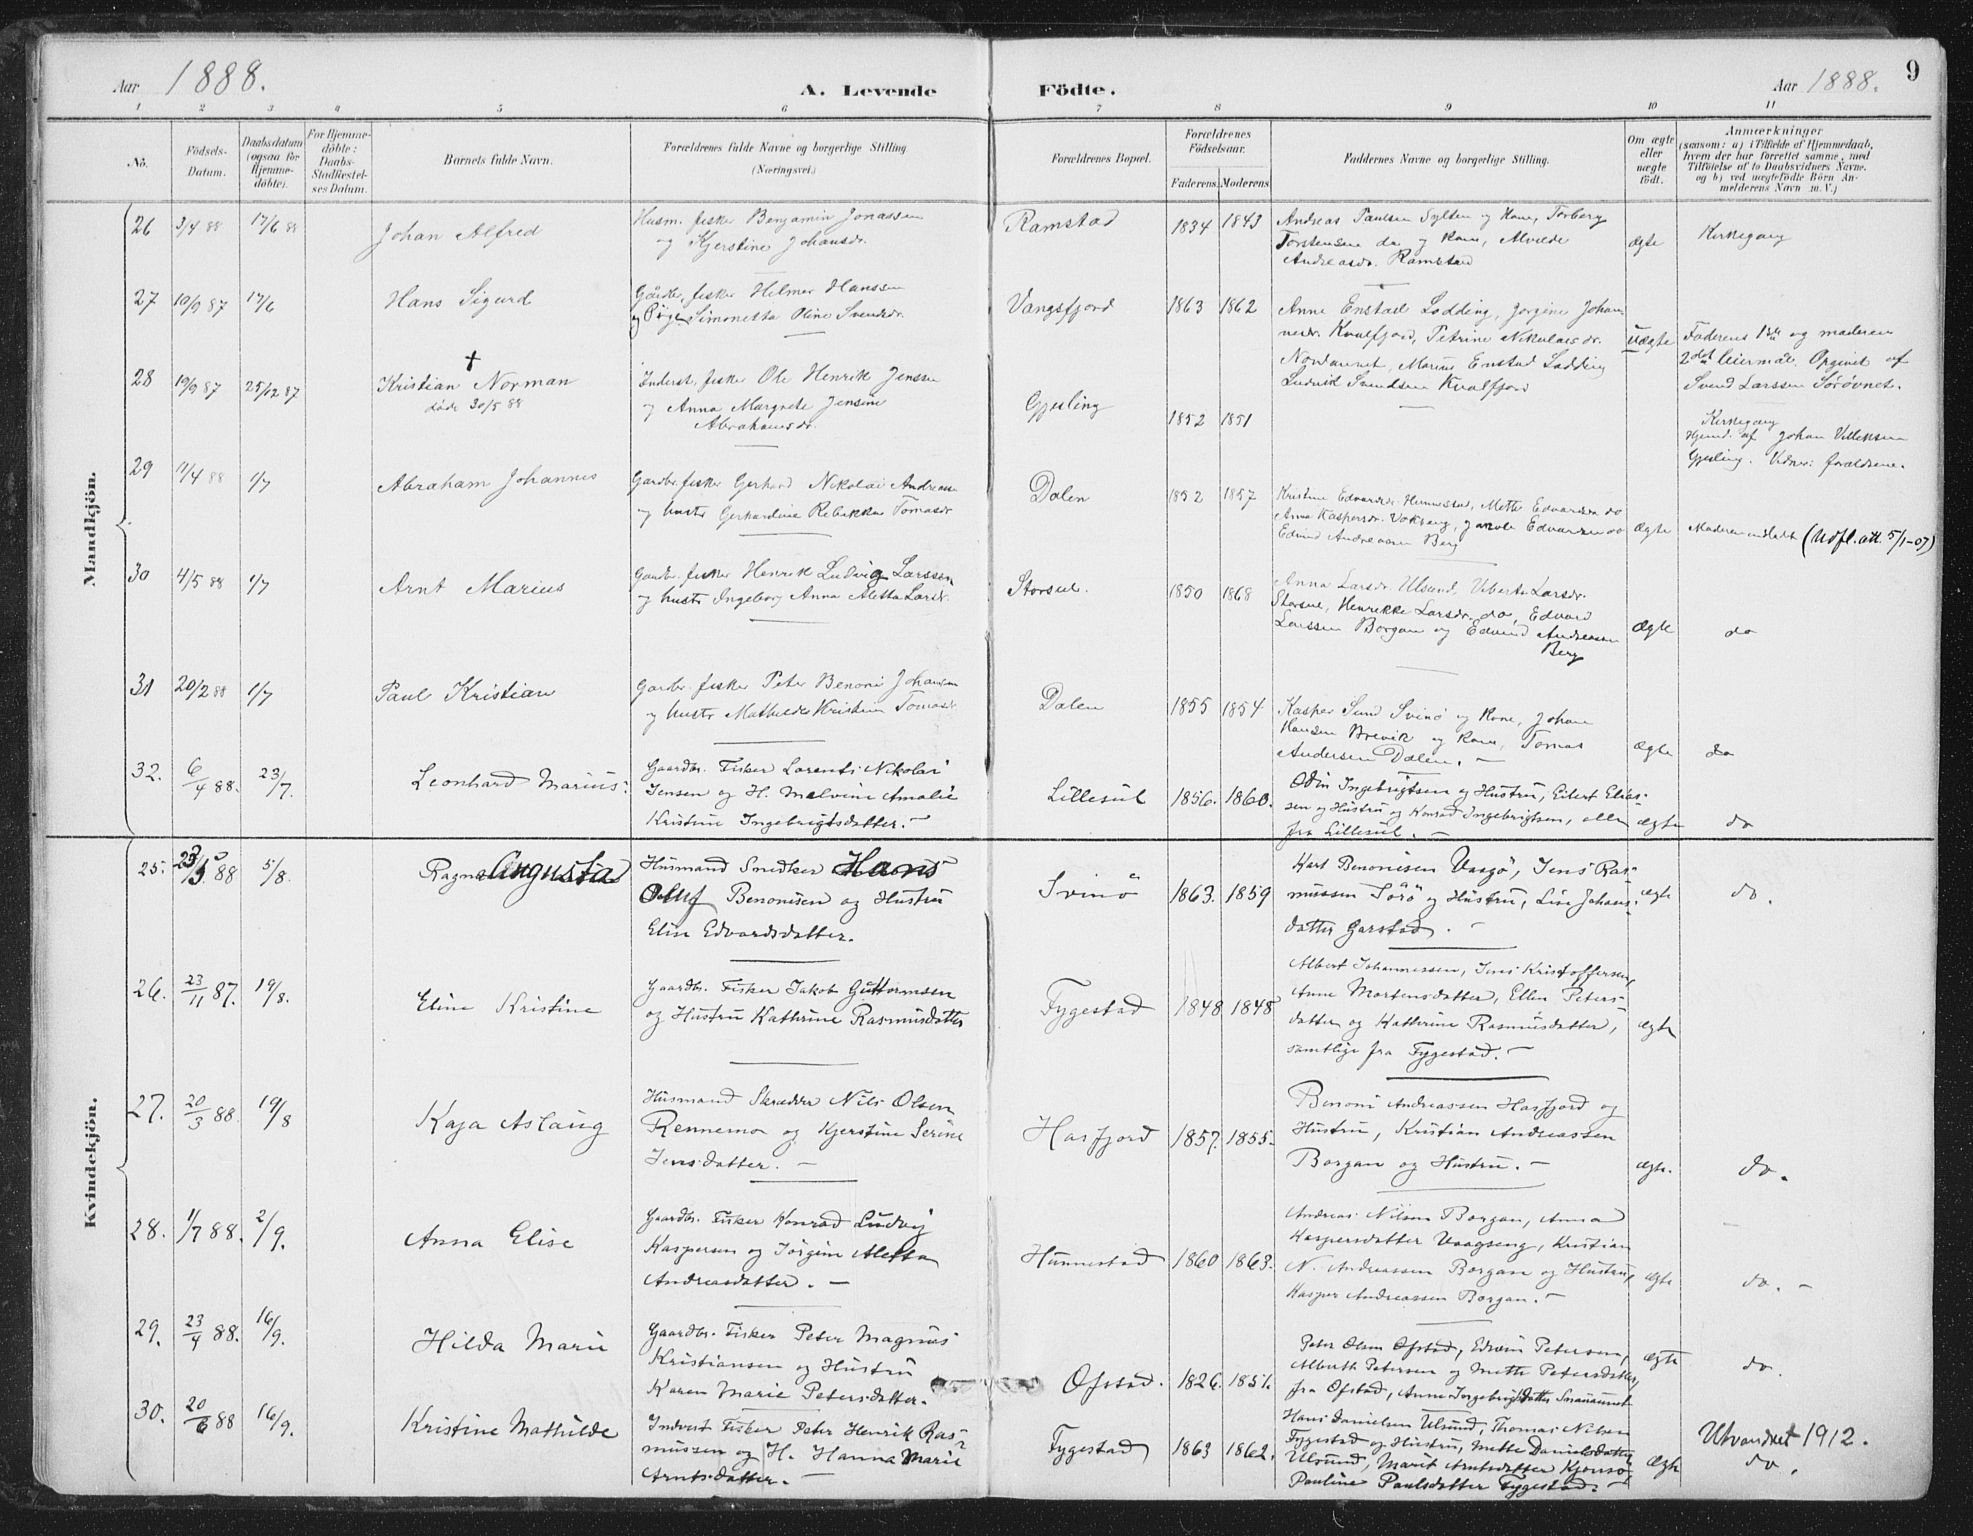 Aar 1888. A. Levende Födte. Aar 1888. 9
1 2 3 4 5 6 7 8 9 10 11
No. Födsels-Datum. Daabsdatum (ogsaa for Hjemme-döbte). For Hjemme-döbte: Daabs-Stadfæstel-ses Datum. Barnets fulde Navn. Forældrenes fulde Navne og borgerlige Stilling. (Næringsvei.) Forældrenes Bopæl. Forældrenes Födselsaar. Faderens. Moderens. Faddernes Navne og borgerlige Stilling. Om ægte eller uægte födt. Anmærkninger
(saasom: a) i Tilfælde af Hjemmedaab,
hvem der har forrettet samme, med
Tilföielse af to Daabsvidners Navne.
og b) ved uægtefödte Börn An-
melderens Navn m. V.)
Mandkjön.
26 3/4 88 17/6 88 Johan Alfred
Husm. fisker Benjamin Jonassen
og Kjerstine Johansdr.
Ramstad 1834 1843
Andreas Paulsen Sylten og Kone, Torberg
Torstensen do og Kone, Alvilde
Andreasdr. Ramstad
ægte Kirkegang
27 10/9 87 17/6 Hans Sigurd
fisker Hilmer Hanssen
og Pige Simonetta Oline Svendsdr.
Vangsfjord 1863 1862
Anne Enstad Lodding, Jorgine Johan
nesdr. Kvalfjord, Petrine Nikolaisdr.
Marius Enstad Lodding
Ludvid Svendsen Kvalfjord
uægte
Faderens 1ste og moderens
2det leiermaal. Opgivet af
Svend Larssen Sörövnet.
28 19/9 87 25/12 87 Kristian Norman
död 30/5 88
Inderst, fisker Ole Henrik Jensen
og Anna Margrete Jensine
Abrahamsdr.
Gjesling 1852 1851
Kirkegang
Hjemd. af Johan Villeksen
Gjesling. Vidner: forældrene.
29 11/4 88 1/7 Abraham Johannes
Gardbr. fisker Gerhard Nikolai Andreasen
og hustr Gerhardine Rebekka Tomasdr
Dalen 1852 1857
Kristine Edvardsdr. Hunnestad, Mette Edvardsen do
Anna Kaspersdr. Edvardsen do
Edvind Andreassen Berg
ægte Moderen indledt (Udfl. att. 5/1-07)
30 4/5 88 1/7 Arnt Marius
Gardbr. fisker Henrik Ludvig Larssen
og hustr Ingeborg Anna Aletta Larsdr.
Storsul. 1850 1868
Anna Larsdr. Ulsund, Larsdr.
Storsul, Henrikke Larsdr. do, Edvard
Larssen Borgan og Edvind Andreassen
Berg
ægte do
31 20/2 88 1/7 Paul Kristian
Gardbr. fisker Peter Benoni Johansen
og hustr Mathilde Kristine Tomasdr
Dalen 1855 1854
Kasper Sund Svinö og Kone, Johan
Hansen Brevik og Kone, Tomas
Andersen Dalen. —
ægte do
32. 6/4 88. 23/7. Leonhard Marius.
Gaardbr. Fisker Lorents Nikolai
Jensen og H. Malvine Amalie
Kristine Ingebrigtsdatter. —
Lillesul 1856. 1860.
Odin Ingebrigtsen og Hustru, Eilert Elias-
sen og Hustru og Konrad Ingebrigtsen, alle
fra Lillesul. —
ægte do
Kvindekjön.
25. 88 5/8. Ragna Augusta
Husmand Snedker Hans
Oluf Benonisen og Hustru
Elise Edvardsdatter.
Svinö 1863. 1859
Karl Benonisen Vaagö, Jens Ras-
mussen Sörö og Hustru, Lise Johans-
datter Garstad. —
ægte do.
26. 23/11 87. 19/8. Eline Kristine
Gaardbr. Fisker Jakob Guttormsen
og Hustru Kathrine Rasmusdatter
Fygestad 1848 1848
Albert Johannessen, Jens Kristoffersen,
Anne Mortensdatter, Ellen Peters-
datter og Katherine Rasmusdatter,
samtlige fra Fygestad. —
ægte
27. 20/3 88. 19/8 Kaja Aslaug
Husmand Skrædder Nils Olsen
Rennemo og Kjerstine Serine
Jensdatter. —
Hasfjord 1857. 1855.
Benoni Andreassen Hasfjord og
Hustru, Kristian Andreassen
Borgan og Hustru. —
ægte. do.
28. 1/7 88. 2/9. Anna Elise
Gaardbr. Fisker Konrad Ludvig
Kaspersen og Jörgine Aletta
Andreasdatter. —
Hunnestad 1860 1863.
Andreas Nilsen Borgan, Anna
Kaspersdatter Vaagseng, Kristian
N. Andreassen Borgan og Hustru,
Kasper Andreassen Borgan. —
ægte do. —
29. 23/4 88. 16/9. Hilda Marie
Gaardbr. Fisker Peter Magnus
Kristiansen og Hustru
Karen Marie Petersdatter.
Ofstad. 1826. 1851.
Peter Olsen Ofstad, Edvin Petersen,
Alberth Petersen og Mette Petersdatter,
fra Ofstad, Anne Ingebrigtsdatter
ægte do.
30. 20/6 88 16/9. Kristine Mathilde
Inderst Fisker Peter Henrik Ras-
mussen og H. Hanna Marie
Arntsdatter. —
Fygestad 1863 1862.
Hans Danielsen Ulsund, Thomas Nilsen
Fygestad og Hustru, Mette Danielsdatter
Ulsund, Marit Arntsdatter Kjönsö,
Pauline Paulsdatter Fygestad. —
ægte Utvandret 1912.
do.